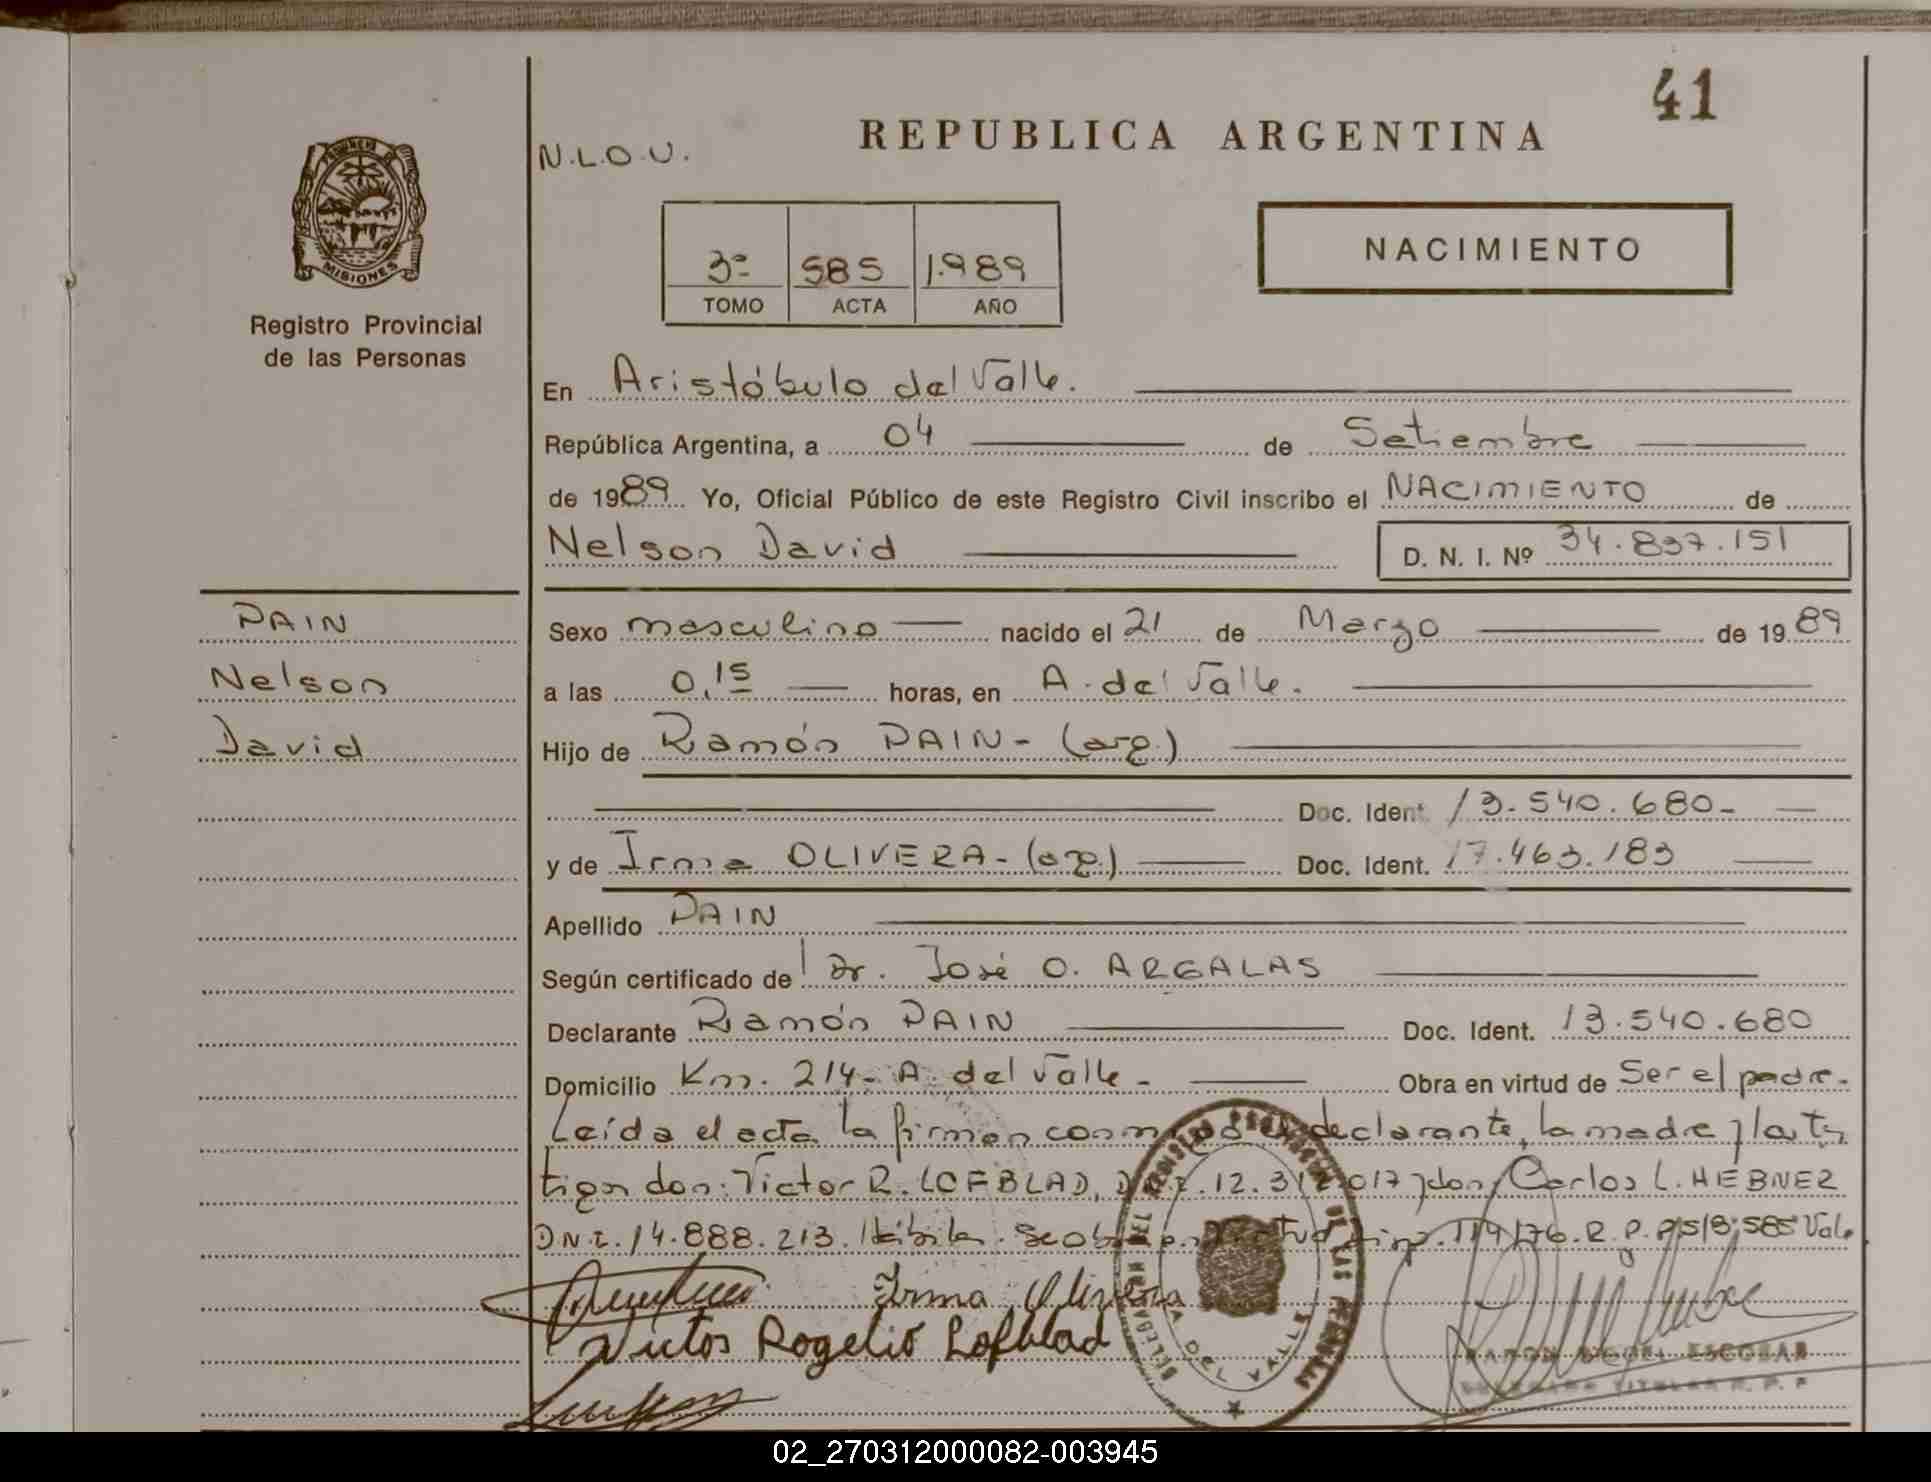 41
REPUBLICA ARGENTINA
N.L.O.U.
PROVINCIA DE
MISIONES
Registro Provincial
de las Personas
NACIMIENTO
3º 585 1.989
TOMO ACTA AÑO
En Aristóbulo del Valle.
República Argentina, a 04 de Setiembre
de 1989 Yo, Oficial Público de este Registro Civil inscribo el NACIMIENTO de
Nelson David D. N. I. Nº 34.837.151
PAIN
Nelson
David
Sexo masculino nacido el 21 de Marzo de 1989
a las 0,15 horas, en A. del Valle.
Hijo de Ramón PAIN - (arg.)
Doc. Ident. 13.540.680-
y de Irma OLIVERA - (arg.) Doc. Ident. 17.463.183
Apellido PAIN
Según certificado de Dr. José O. ARGALAS
Declarante Ramón PAIN Doc. Ident. 13.540.680
Domicilio Km. 214- A. del Valle - Obra en virtud de Ser el padre.
Leída el acta la firman conmigo el declarante, la madre y los tes
tigos don: Victor R. LOFBLAD, D.N.I. 12.31 017 y don Carlos L. HEBNER
D.N.I. 14.888.213. Hábiles. Se obra en virtud 114/76. R.P.P. S/B: 585 Vale
Irma Olivera
Victor Rogelio Lofblad
DELEGACION DEL REGISTRO PROVINCIAL DE LAS PERSONAS
A. DEL VALLE
RAMON MIGUEL ESCOBAR
DELEGADO TITULAR R. P. P
02_270312000082-003945